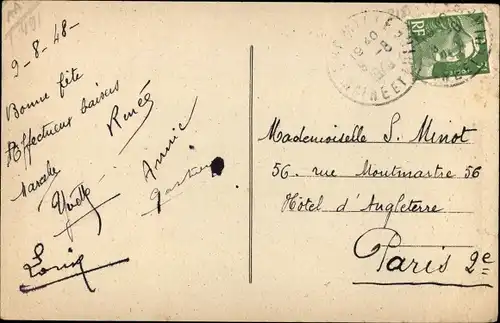 9-8-48-
Bonne fête
Affectueux baisers
Marcelle
Renée
Yvette
Annie
Gaston
Louis
RF
Mademoiselle S. Minot
56. rue Montmartre 56
Hôtel d'Angleterre
Paris 2e